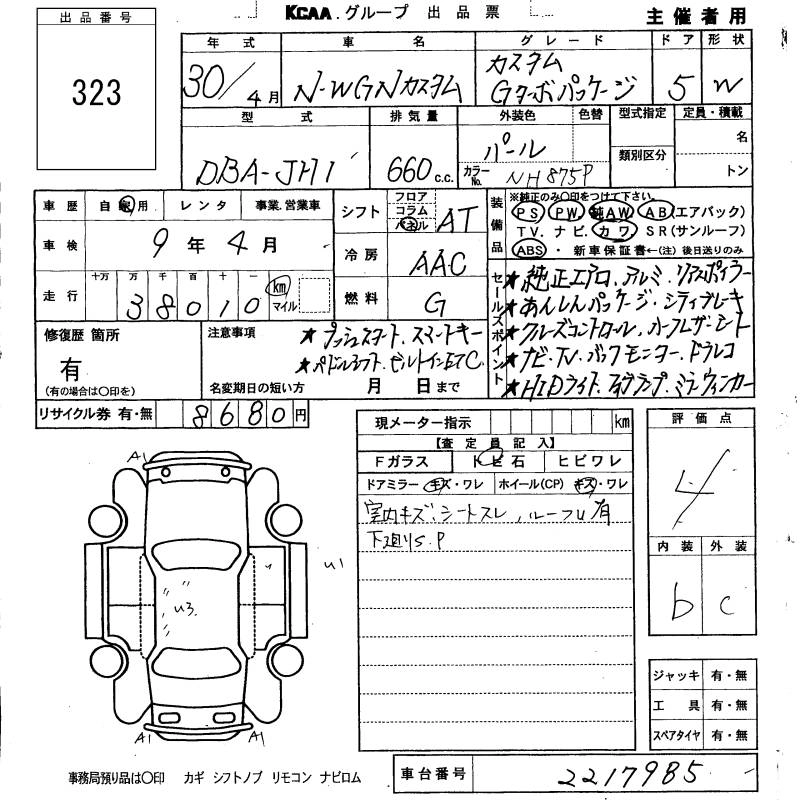 KCAA グループ 出品票
主催者用
出品番号
323
年式 車名 グレード ドア 形状
30/4月 N-WGNカスタム カスタム Gターボパッケージ 5 W
型式 排気量 外装色 色替 型式指定 定員・積載
DBA-JH1 660c.c. パール 名
類別区分
カラーNo. NH875P トン
車歴 自家用 レンタ 事業.営業車
シフト フロア コラム パネル AT
装備品 ※純正のみ○印をつけて下さい。
PS PW 純AW AB(エアバック)
TV. ナビ. カワ SR(サンルーフ)
ABS ・ 新車保証書←(注)後日送りのみ
車検 9年4月
冷房 AAC
走行 十万 万 千 百 十 一 km マイル
38010
燃料 G
セールスポイント
★純正エアロ、アルミ、リアスポイラー
★あんしんパッケージ・シティブレーキ
★クルーズコントロール、ハーフレザーシート
★ナビ・TV、バックモニター、ドラレコ
★HIDライト、フォグランプ、ミラーウィンカー
修復歴 箇所
有
(有の場合は○印を)
注意事項
★プッシュスタート、スマートキー
★パドルシフト、ビルトインETC
名変期日の短い方 月 日まで
リサイクル券 有・無 8680円
現メーター指示 km
【査定員記入】
Fガラス トビ石 ヒビワレ
ドアミラー キズ・ワレ ホイール(CP) キズ・ワレ
室内キズ、シートスレ、ルーフU有
下廻りS.P
評価点
4
内装 外装
b c
A1
U1
U3
A1 A1
ジャッキ 有・無
工具 有・無
スペアタイヤ 有・無
事務局預り品は○印 カギ シフトノブ リモコン ナビロム
車台番号 2217985